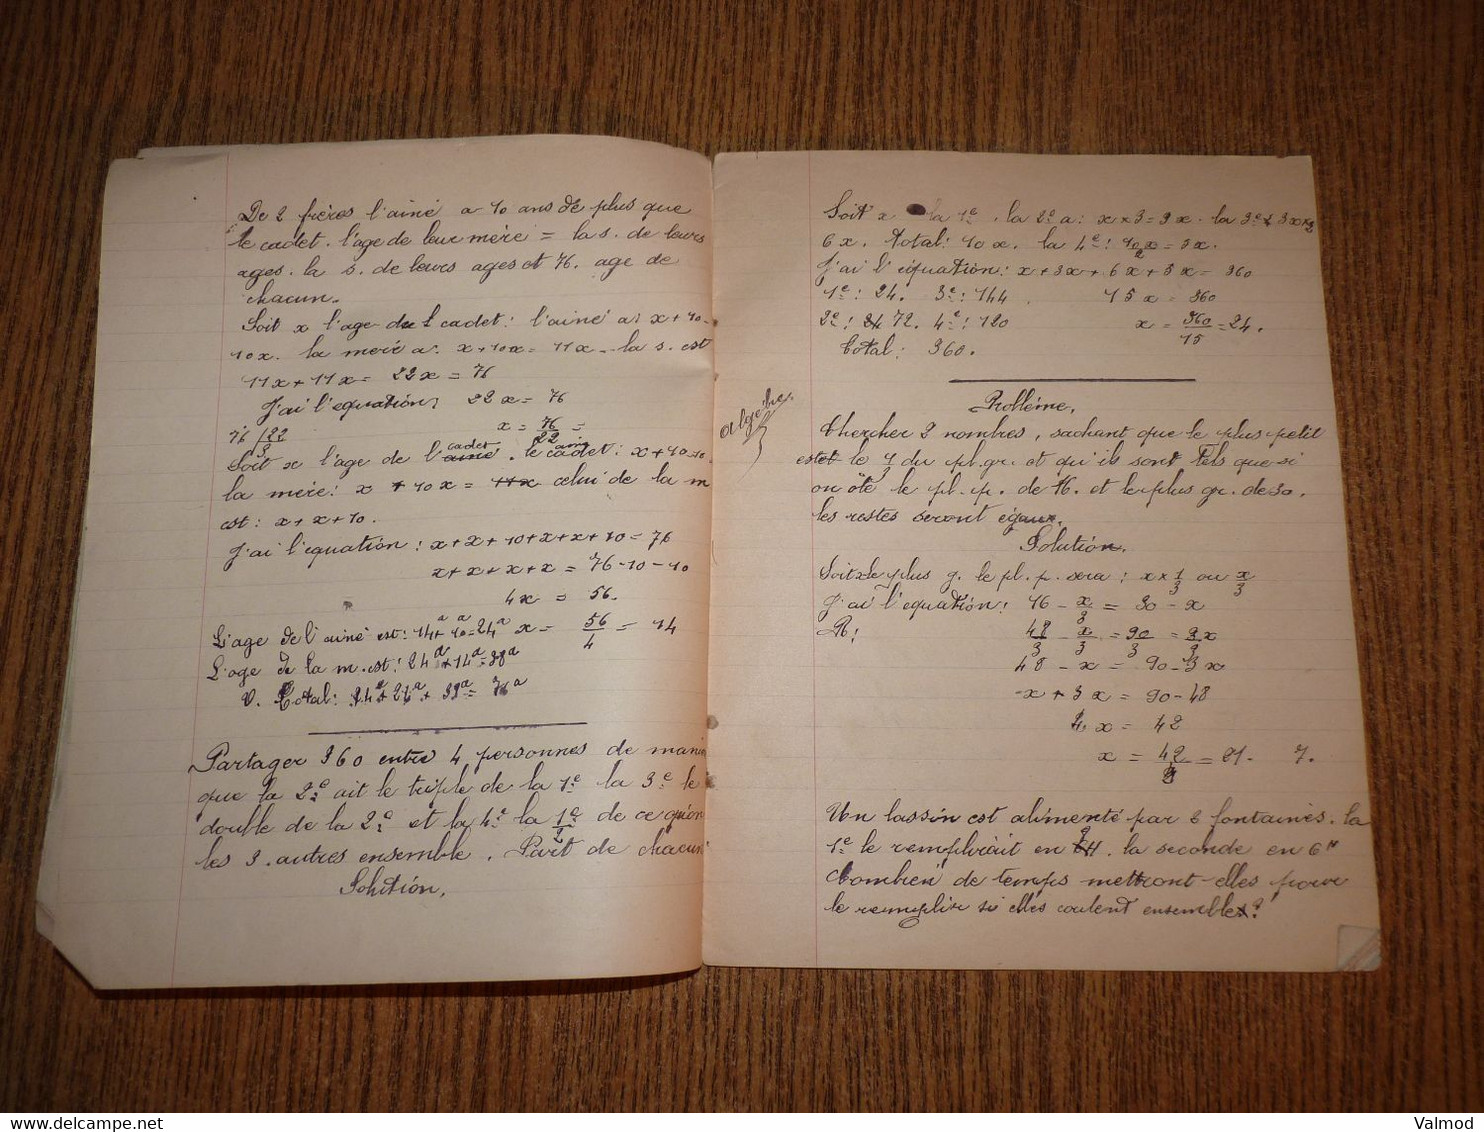 De 2 frères l'ainé a 10 ans de plus que
le cadet. l'age de leur mère = la s. de leurs
ages. la s. de leurs ages et 76. age de
chacun.
Soit x l'age du cadet: l'ainé a: x + 10 =
10x. la mère a: x + 10x = 11x. la s. est
11x + 11x = 22x = 76
J'ai l'equation: 22x = 76
x = 76/22 =
76 / 22
3
Soit x l'age de l'ainé cadet. le cadet ainé: x + 10
la mère: x + 10x = 11x celui de la m
est: x + x + 10.
J'ai l'equation: x + x + 10 + x + x + 10 = 76
x + x + x + x = 76 - 10 - 10
4x = 56.
x = 56/4 = 14
L'age de l'ainé est: 14a + 10a = 24a
L'age de la m. est: 24a + 14a = 38a
V. Total: 14a + 24a + 38a = 76a
Partager 360 entre 4 personnes de mani
que la 2e ait le triple de la 1e la 3e le
double de la 2e et la 4e la 1e/2 de ce qu'on
les 3 autres ensemble. Part de chacun
Solution.
Soit x la 1e. la 2e a: x × 3 = 3x. la 3e
6x. Total: 10x. la 4e: 10x/2 = 5x.
J'ai l'équation: x + 3x + 6x + 5x = 360
1e: 24. 3e: 144 15x = 360
2e: 72. 4e: 120 x = 360/15 = 24.
Total: 360.
algèbre.
Problème.
Chercher 2 nombres, sachant que le plus petit
est le 1/3 du pl. gr. et qu'ils sont tels que si
on ôte le pl. p. de 16. et le plus gr. de 30,
les restes seront égaux.
Solution.
Soit x le plus g. le pl. p. sera: x × 1/3 ou x/3
J'ai l'equation: 16 - x/3 = 30 - x
R: 48/3 - x/3 = 90/3 = 3x/3
48 - x = 90 - 3x
-x + 3x = 90 - 48
2x = 42
x = 42/2 = 21. 7.
Un bassin est alimenté par 2 fontaines. la
1e le remplirait en H. la seconde en 6H
Combien de temps mettront-elles pour
le remplir si elles coulent ensemble?
www.delcampe.net
Valmod